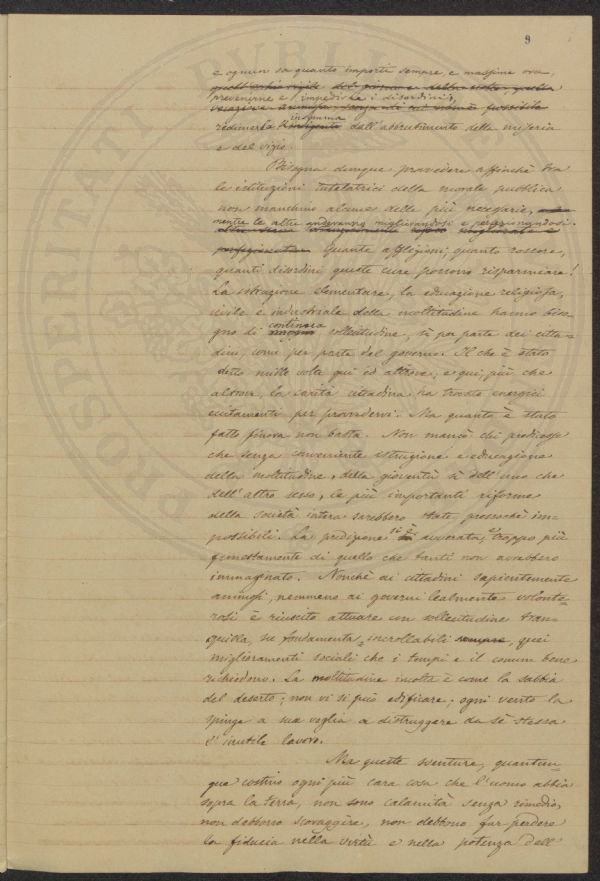 9
e ognun sa quanto importi sempre, e massime ora,
prevenirne e impedirne i disordini,
redimerla insomma dall'abbrutimento della miseria
e del vizio.
Bisogna dunque provedere affinchè tra
le istituzioni tutelatrici della morale pubblica
non manchino alcune delle più necessarie,
mentre le altre anderanno migliorandosi e perfezionandosi.
Quante afflizioni, quanto rossore,
quanti disordini queste cure possono risparmiare!
La istruzione elementare, la educazione religiosa,
civile e industriale della moltitudine hanno biso=
gno di continua sollecitudine, sì per parte dei citta=
dini, come per parte del governo. Il che è stato
detto mille volte qui ed altrove; e qui, più che
altrove, la carità cittadina ha trovato energici
eccitamenti per provvedervi. Ma quanto è stato
fatto finora non basta. Non mancò chi predicesse
che senza conveniente istruzione e educazione
della moltitudine, della gioventù sì dell'uno che
dell'altro sesso, le più importanti riforme
della società intera sarebbero state pressochè im=
possibili. La predizione si è avverata, e troppo più
funestamente di quello che tanti non avrebbero
immaginato. Nonchè ai cittadini sapientemente
animosi, nemmeno ai governi lealmente volonte=
rosi è riuscito attuare con sollecitudine tran=
quilla, su fondamenta incrollabili, quei
miglioramenti sociali che i tempi e il comun bene
richiedono. La moltitudine incolta è come la sabbia
del deserto; non vi si può edificare; ogni vento la
spinge a sua voglia a distruggere da sè stessa
l'inutile lavoro.
Ma queste sventure, quantun=
que costino ogni più cara cosa che l'uomo abbia
sopra la terra, non sono calamità senza rimedio,
non debbono scoraggire, non debbono far perdere
la fiducia nella virtù e nella potenza dell'